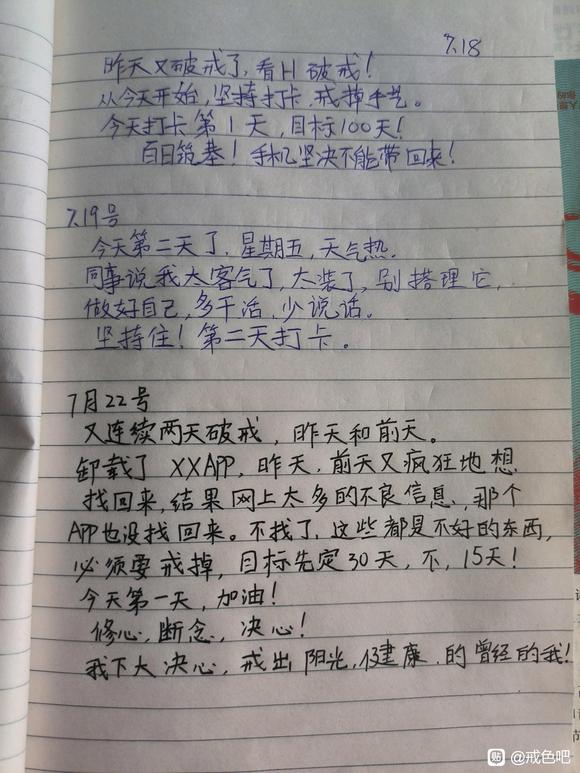 7.18
昨天又破戒了,看H破戒!
从今天开始,坚持打卡,戒掉手艺。
今天打卡第1天,目标100天!
百日筑基!手机坚决不能带回来!
7.19号
今天第二天了,星期五,天气热.
同事说我太客气了,太装了,别搭理它,
做好自己,多干活,少说话。
坚持住!第二天打卡。
7月22号
又连续两天破戒,昨天和前天。
卸载了XXAPP,昨天,前天又疯狂地想
找回来,结果网上太多的不良信息,那个
APP也没找回来。不找了,这些都是不好的东西,
必须要戒掉,目标先定30天,不,15天!
今天第一天,加油!
修心,断念,决心!
我下大决心,戒出阳光,健康,的曾经的我!
贴 @戒色吧